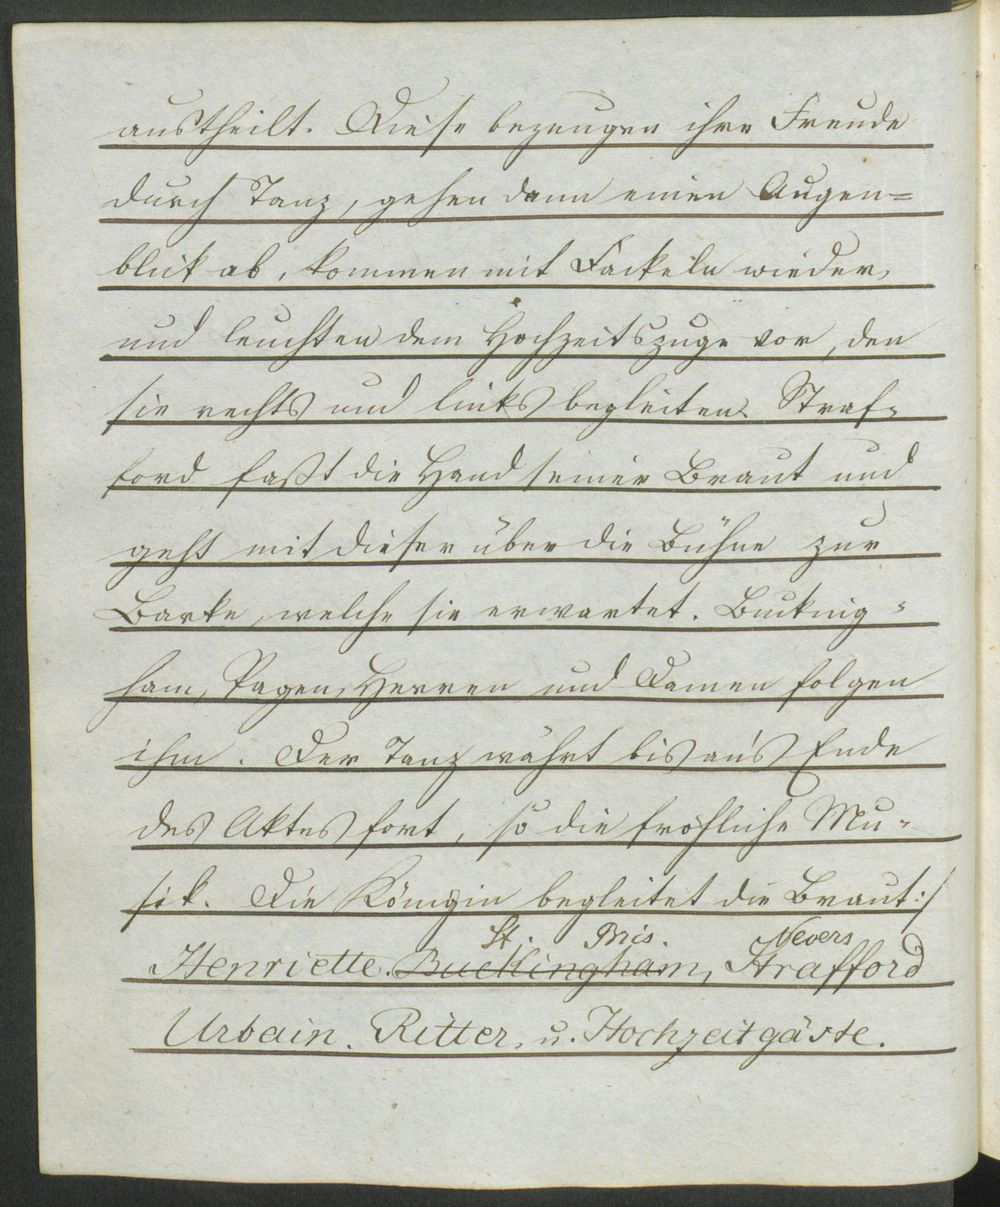 austheilt. Diese bezeugen ihre Freude
durch Tanz, gehen dann einen Augen=
blick ab, kommen mit Fackeln wieder,
und leuchten dem Hochzeitszuge vor, den
sie rechts und links begleiten. Straf=
ford faßt die Hand seiner Braut und
geht mit dieser über die Bühne zur
Barke, welche sie erwartet. Bucking=
ham, Pagen, Herren und Damen folgen
ihm. Der Tanz währt bis an's Ende
des Aktes fort, so die fröhliche Mu=
sik. Die Königin begleitet die Braut :/
St. Bris. Nevers
Henriette. Buckingham, Strafford
Urbain. Ritter, u. Hochzeitgäste.